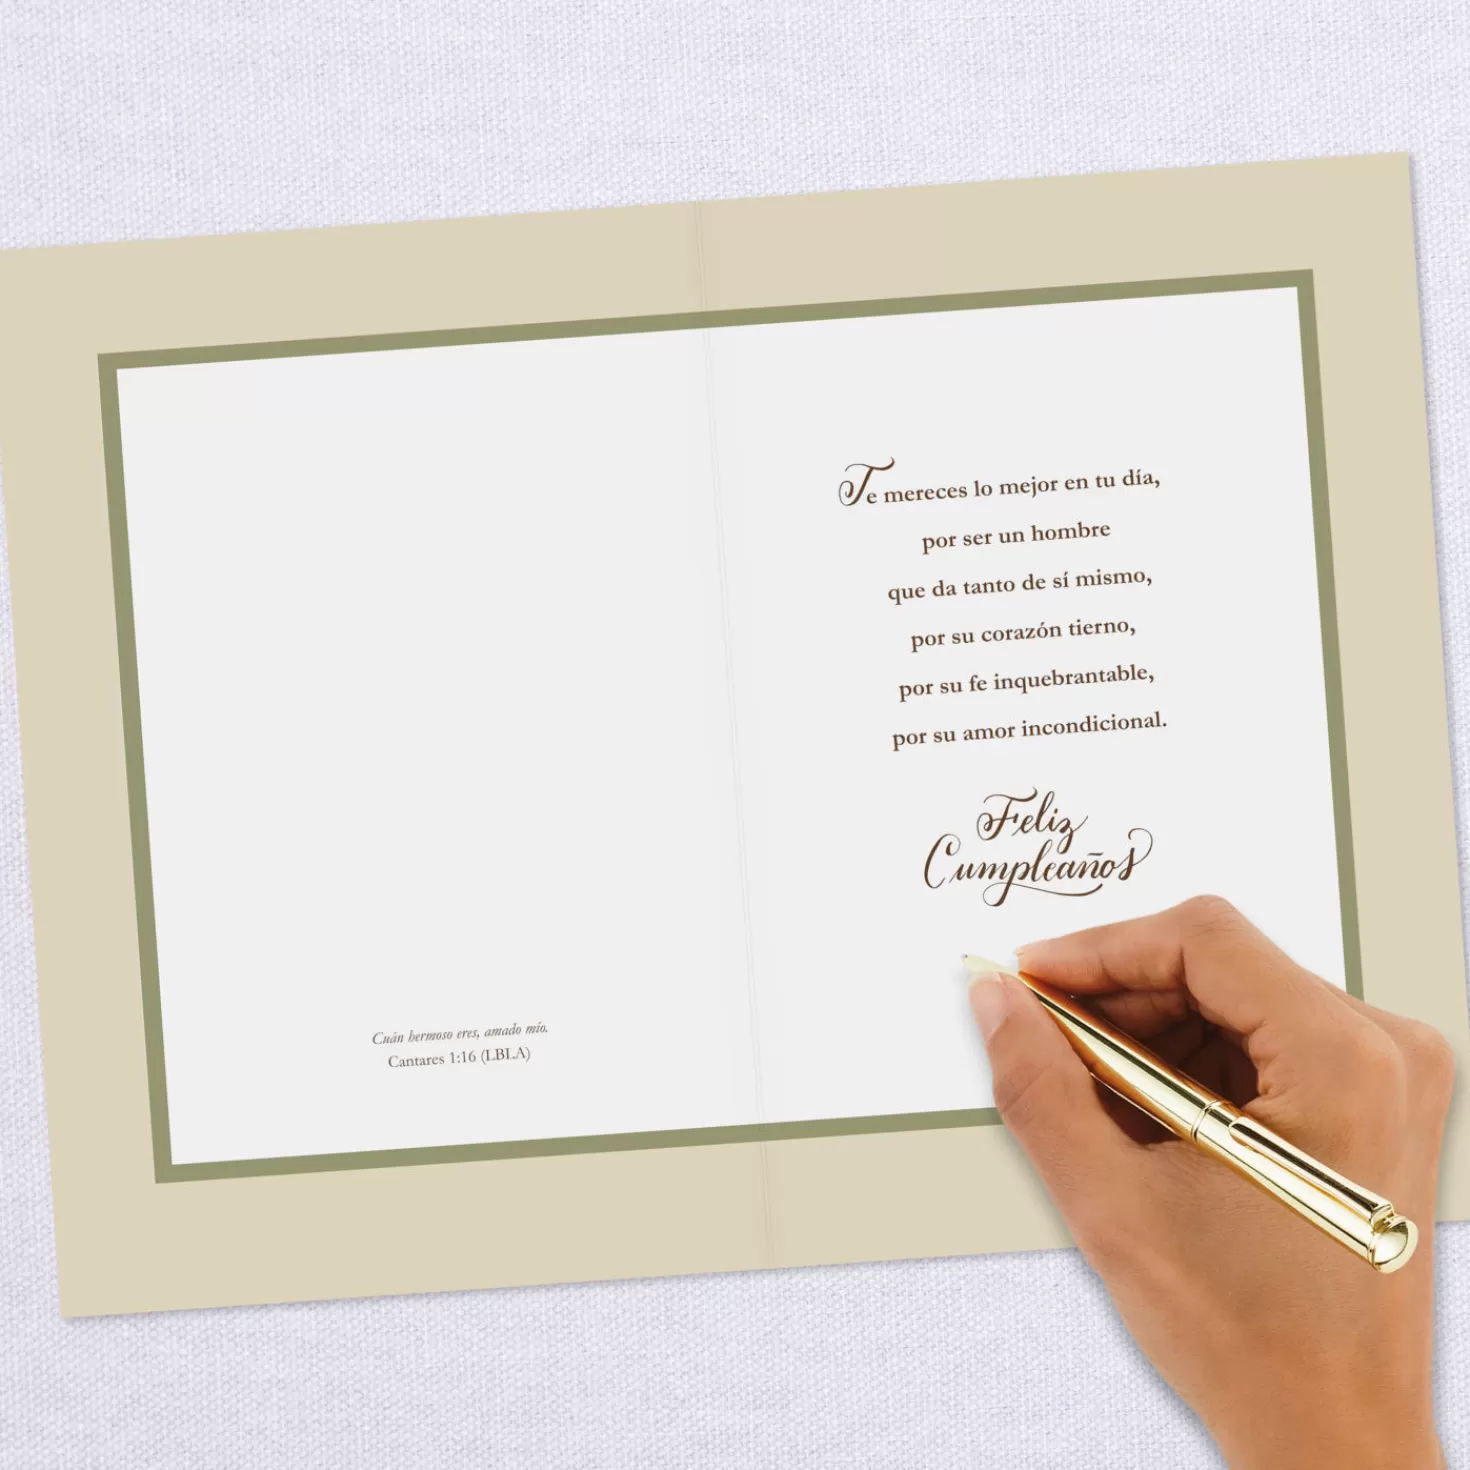 Cuán hermoso eres, amado mío.
Cantares 1:16 (LBLA)
Te mereces lo mejor en tu día,
por ser un hombre
que da tanto de sí mismo,
por su corazón tierno,
por su fe inquebrantable,
por su amor incondicional.
Feliz
Cumpleaños